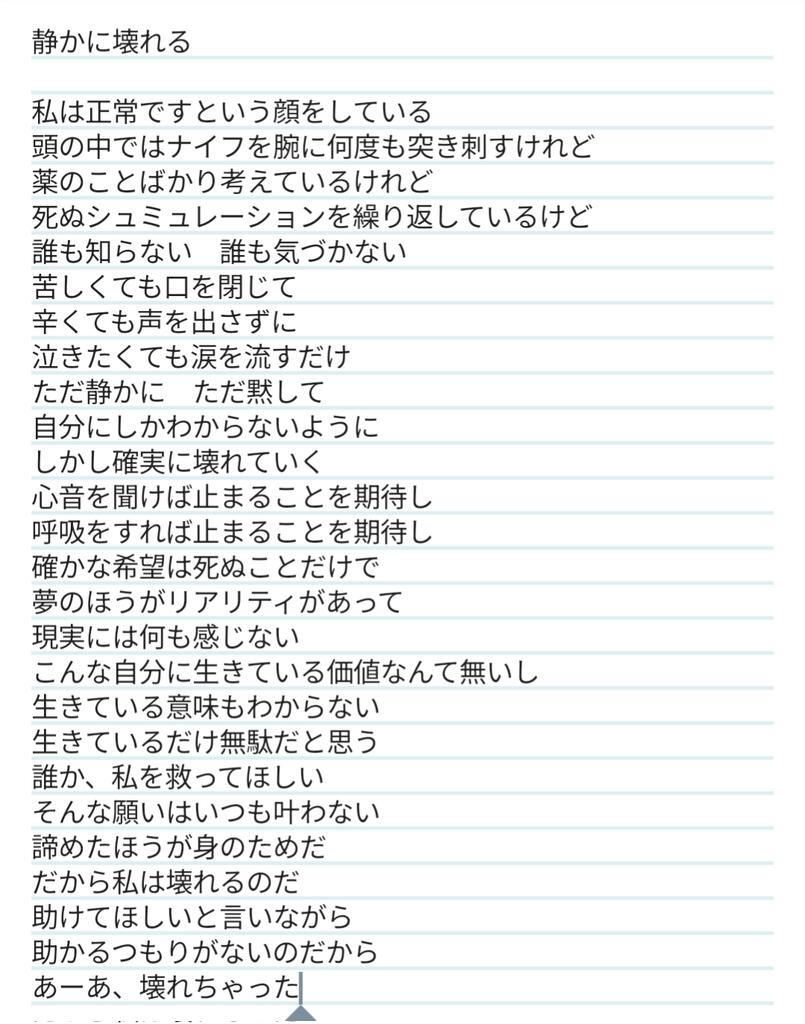 静かに壊れる
私は正常ですという顔をしている
頭の中ではナイフを腕に何度も突き刺すけれど
薬のことばかり考えているけれど
死ぬシュミュレーションを繰り返しているけど
誰も知らない　誰も気づかない
苦しくても口を閉じて
辛くても声を出さずに
泣きたくても涙を流すだけ
ただ静かに　ただ黙して
自分にしかわからないように
しかし確実に壊れていく
心音を聞けば止まることを期待し
呼吸をすれば止まることを期待し
確かな希望は死ぬことだけで
夢のほうがリアリティがあって
現実には何も感じない
こんな自分に生きている価値なんて無いし
生きている意味もわからない
生きているだけ無駄だと思う
誰か、私を救ってほしい
そんな願いはいつも叶わない
諦めたほうが身のためだ
だから私は壊れるのだ
助けてほしいと言いながら
助かるつもりがないのだから
あーあ、壊れちゃった